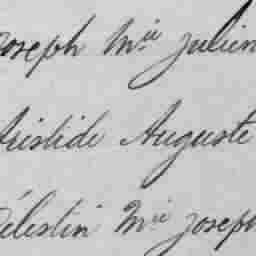 Joseph Mie Julien
Aristide Auguste
Célestin Mie Joseph